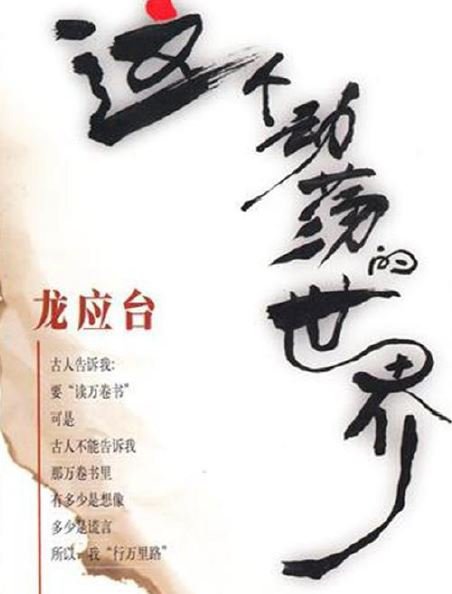 这个动荡的世界
龙应台
古人告诉我:
要“读万卷书”
可是
古人不能告诉我
那万卷书里
有多少是想像
多少是谎言
所以，我“行万里路”